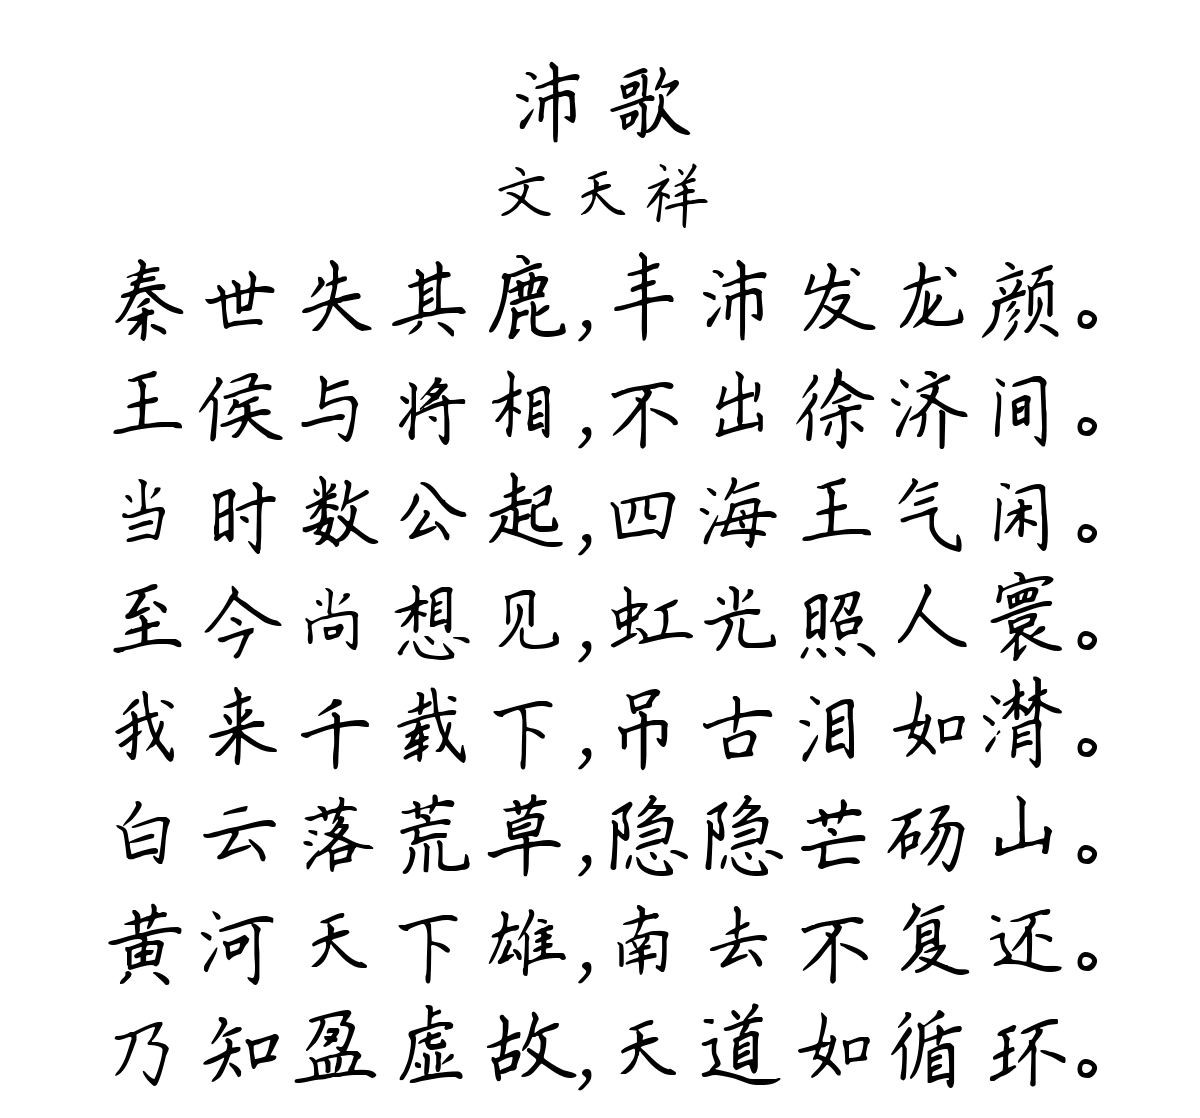 沛歌
文天祥
秦世失其鹿,丰沛发龙颜。
王侯与将相,不出徐济间。
当时数公起,四海王气闲。
至今尚想见,虹光照人寰。
我来千载下,吊古泪如潸。
白云落荒草,隐隐芒砀山。
黄河天下雄,南去不复还。
乃知盈虚故,天道如循环。